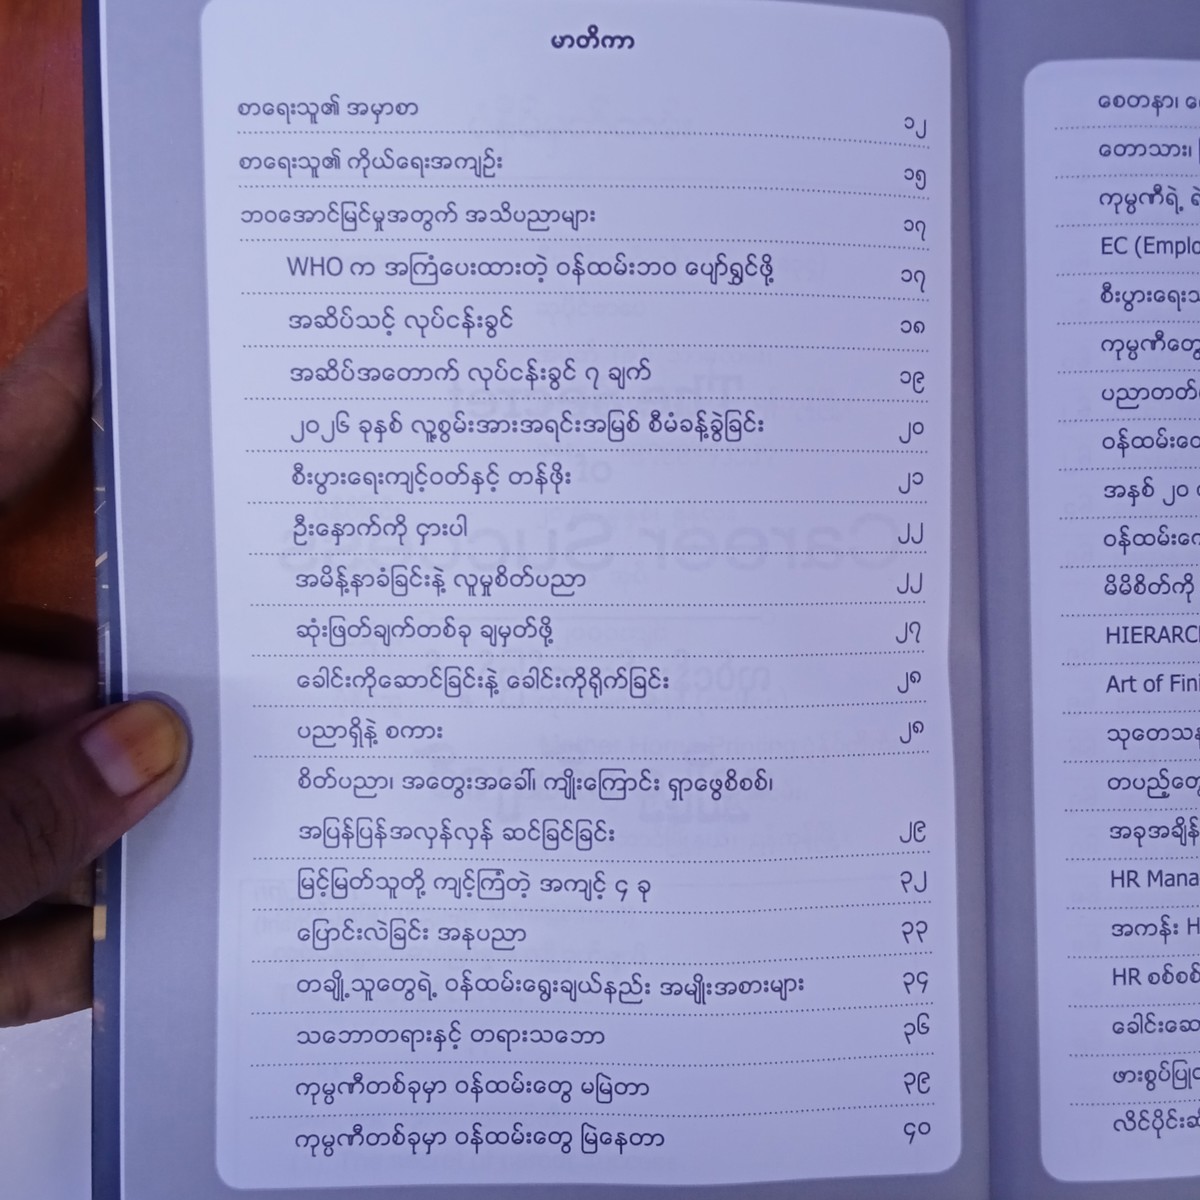 မာတိကာ
စာရေးသူ၏ အမှာစာ ၁၂
စာရေးသူ၏ ကိုယ်ရေးအကျဉ်း ၁၅
ဘဝအောင်မြင်မှုအတွက် အသိပညာများ ၁၇
WHO က အကြံပေးထားတဲ့ ဝန်ထမ်းဘဝ ပျော်ရွှင်ဖို့ ၁၇
အဆိပ်သင့် လုပ်ငန်းခွင် ၁၈
အဆိပ်အတောက် လုပ်ငန်းခွင် ၇ ချက် ၁၉
၂၀၂၆ ခုနှစ် လူ့စွမ်းအားအရင်းအမြစ် စီမံခန့်ခွဲခြင်း ၂၀
စီးပွားရေးကျင့်ဝတ်နှင့် တန်ဖိုး ၂၁
ဦးနှောက်ကို ငှားပါ ၂၂
အမိန့်နာခံခြင်းနဲ့ လူမှုစိတ်ပညာ ၂၂
ဆုံးဖြတ်ချက်တစ်ခု ချမှတ်ဖို့ ၂၇
ခေါင်းကိုဆောင်ခြင်းနဲ့ ခေါင်းကိုရိုက်ခြင်း ၂၈
ပညာရှိနဲ့ စကား ၂၈
စိတ်ပညာ၊ အတွေးအခေါ်၊ ကျိုးကြောင်း ရှာဖွေစိစစ်၊
အပြန်ပြန်အလှန်လှန် ဆင်ခြင်ခြင်း ၂၉
မြင့်မြတ်သူတို့ ကျင့်ကြံတဲ့ အကျင့် ၄ ခု ၃၂
ပြောင်းလဲခြင်း အနုပညာ ၃၃
တချို့သူတွေရဲ့ ဝန်ထမ်းရွေးချယ်နည်း အမျိုးအစားများ ၃၄
သဘောတရားနှင့် တရားသဘော ၃၆
ကုမ္ပဏီတစ်ခုမှာ ဝန်ထမ်းတွေ မမြဲတာ ၃၉
ကုမ္ပဏီတစ်ခုမှာ ဝန်ထမ်းတွေ မြဲနေတာ ၄၀
စေတနာ၊
တောသား၊
ကုမ္ပဏီရဲ့
EC
ကုမ္ပဏီတွေ
အနှစ် ၂၀
မိမိစိတ်ကို
Art of
HR
အကန်း
HR